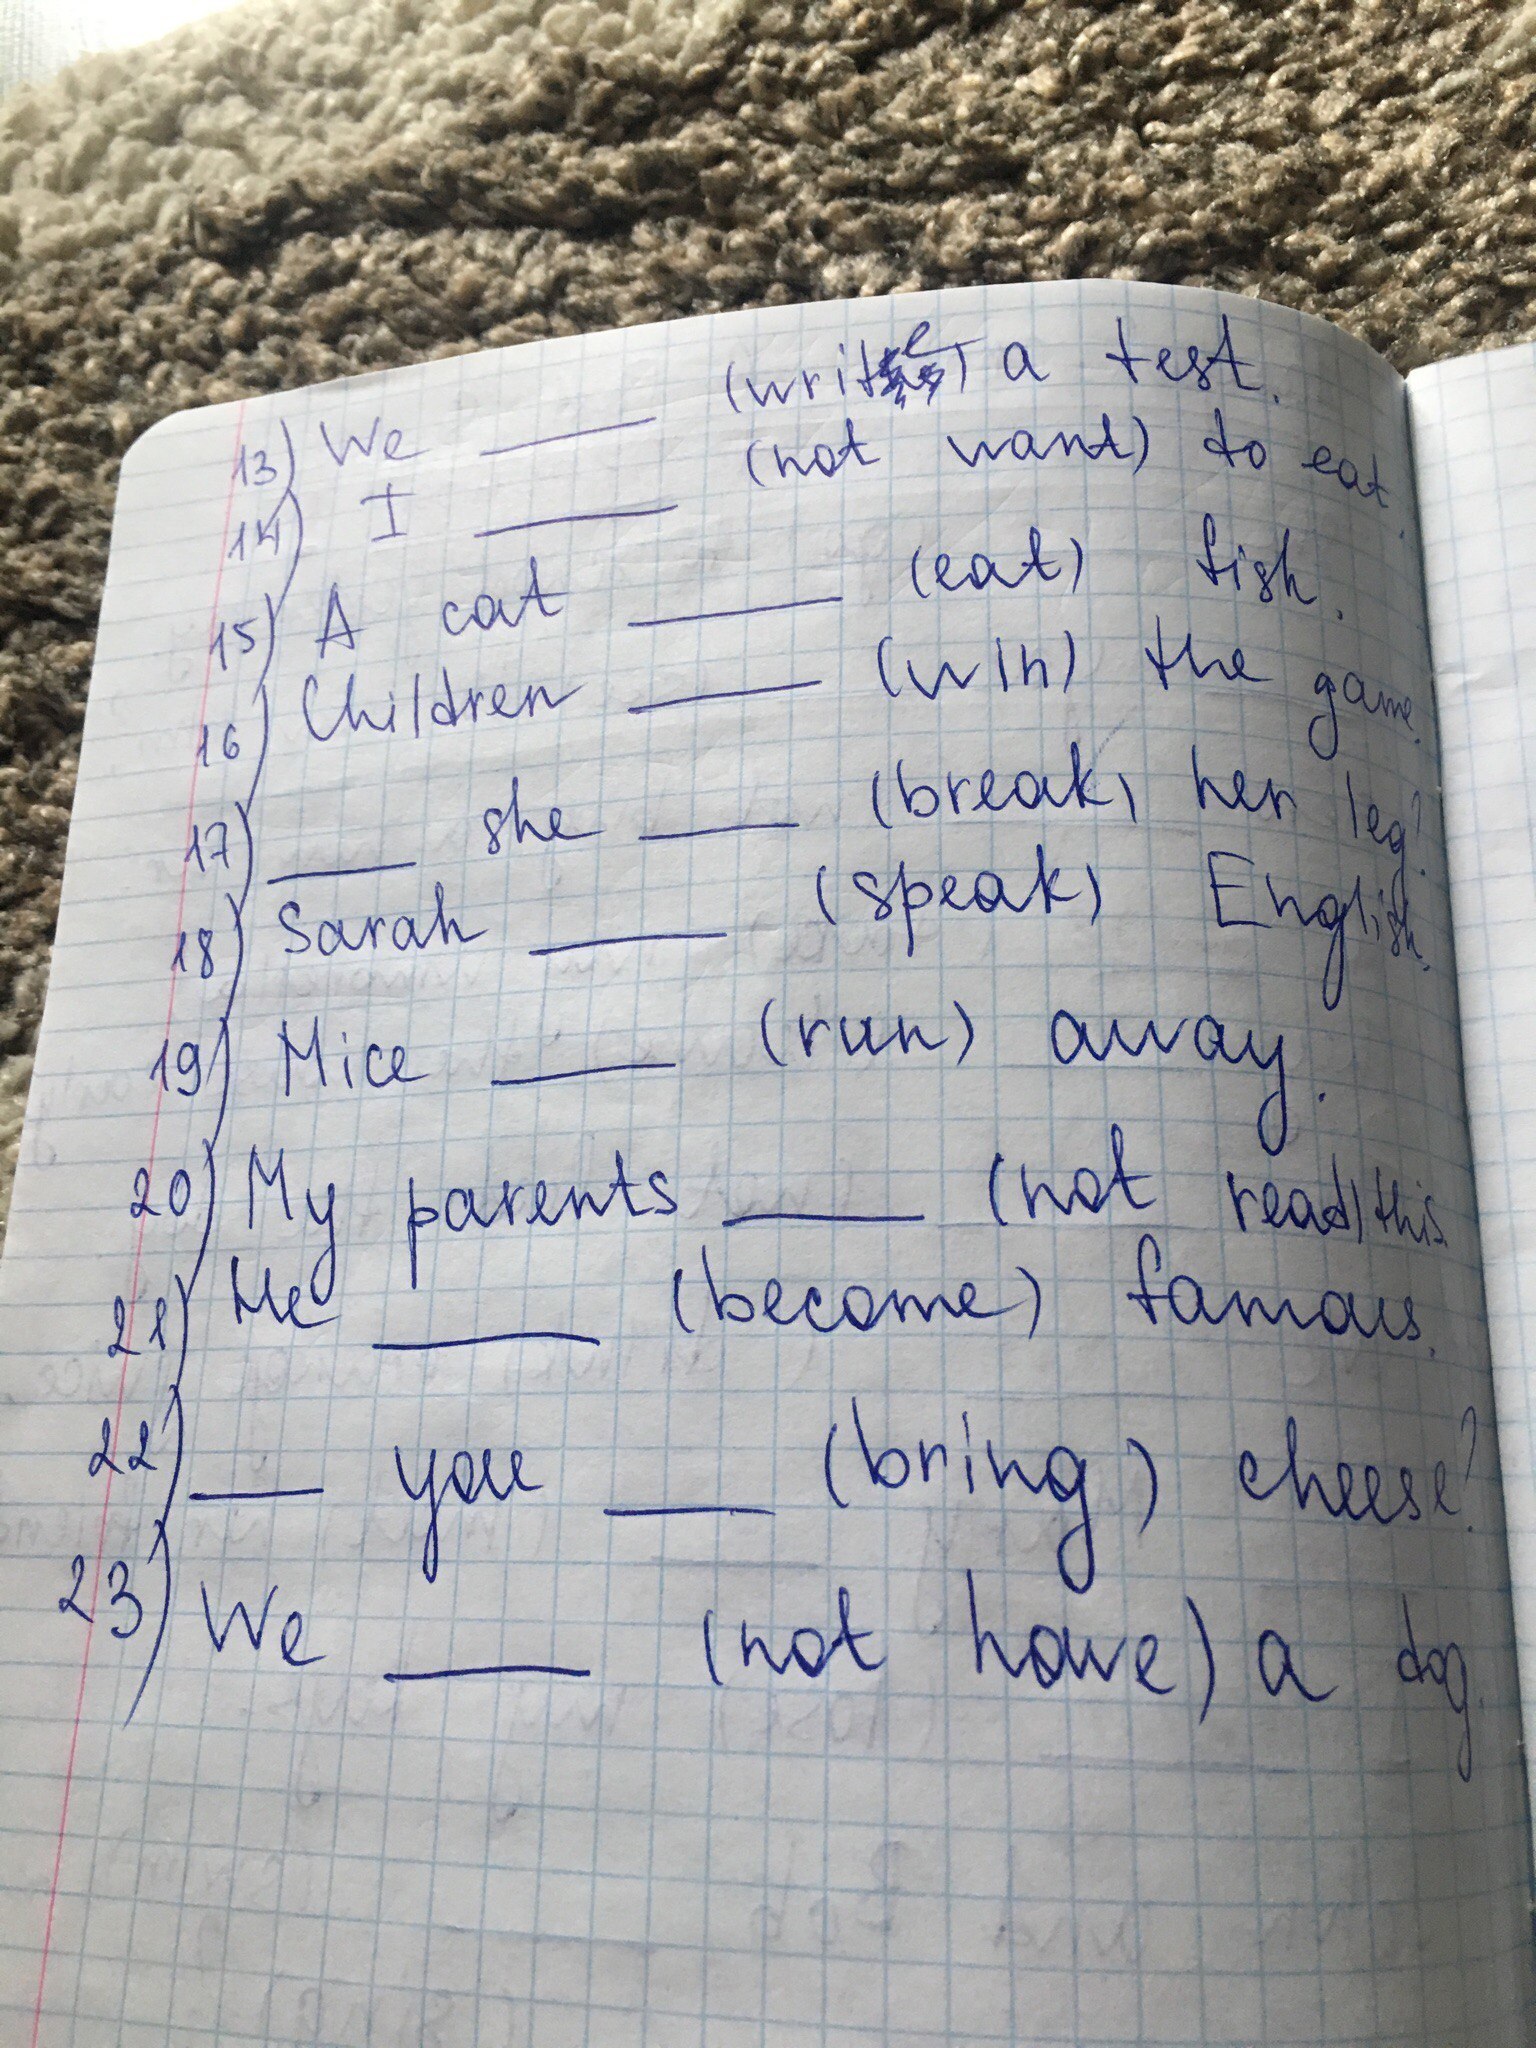 13) We ______ (write) a test.
14) I ______ (not want) to eat.
15) A cat ______ (eat) fish.
16) Children ______ (win) the game.
17) ____ she ____ (break) her leg?
18) Sarah ______ (speak) English.
19) Mice ______ (run) away.
20) My parents ______ (not read) this.
21) He ______ (become) famous.
22) ____ you ____ (bring) cheese?
23) We ______ (not have) a dog.